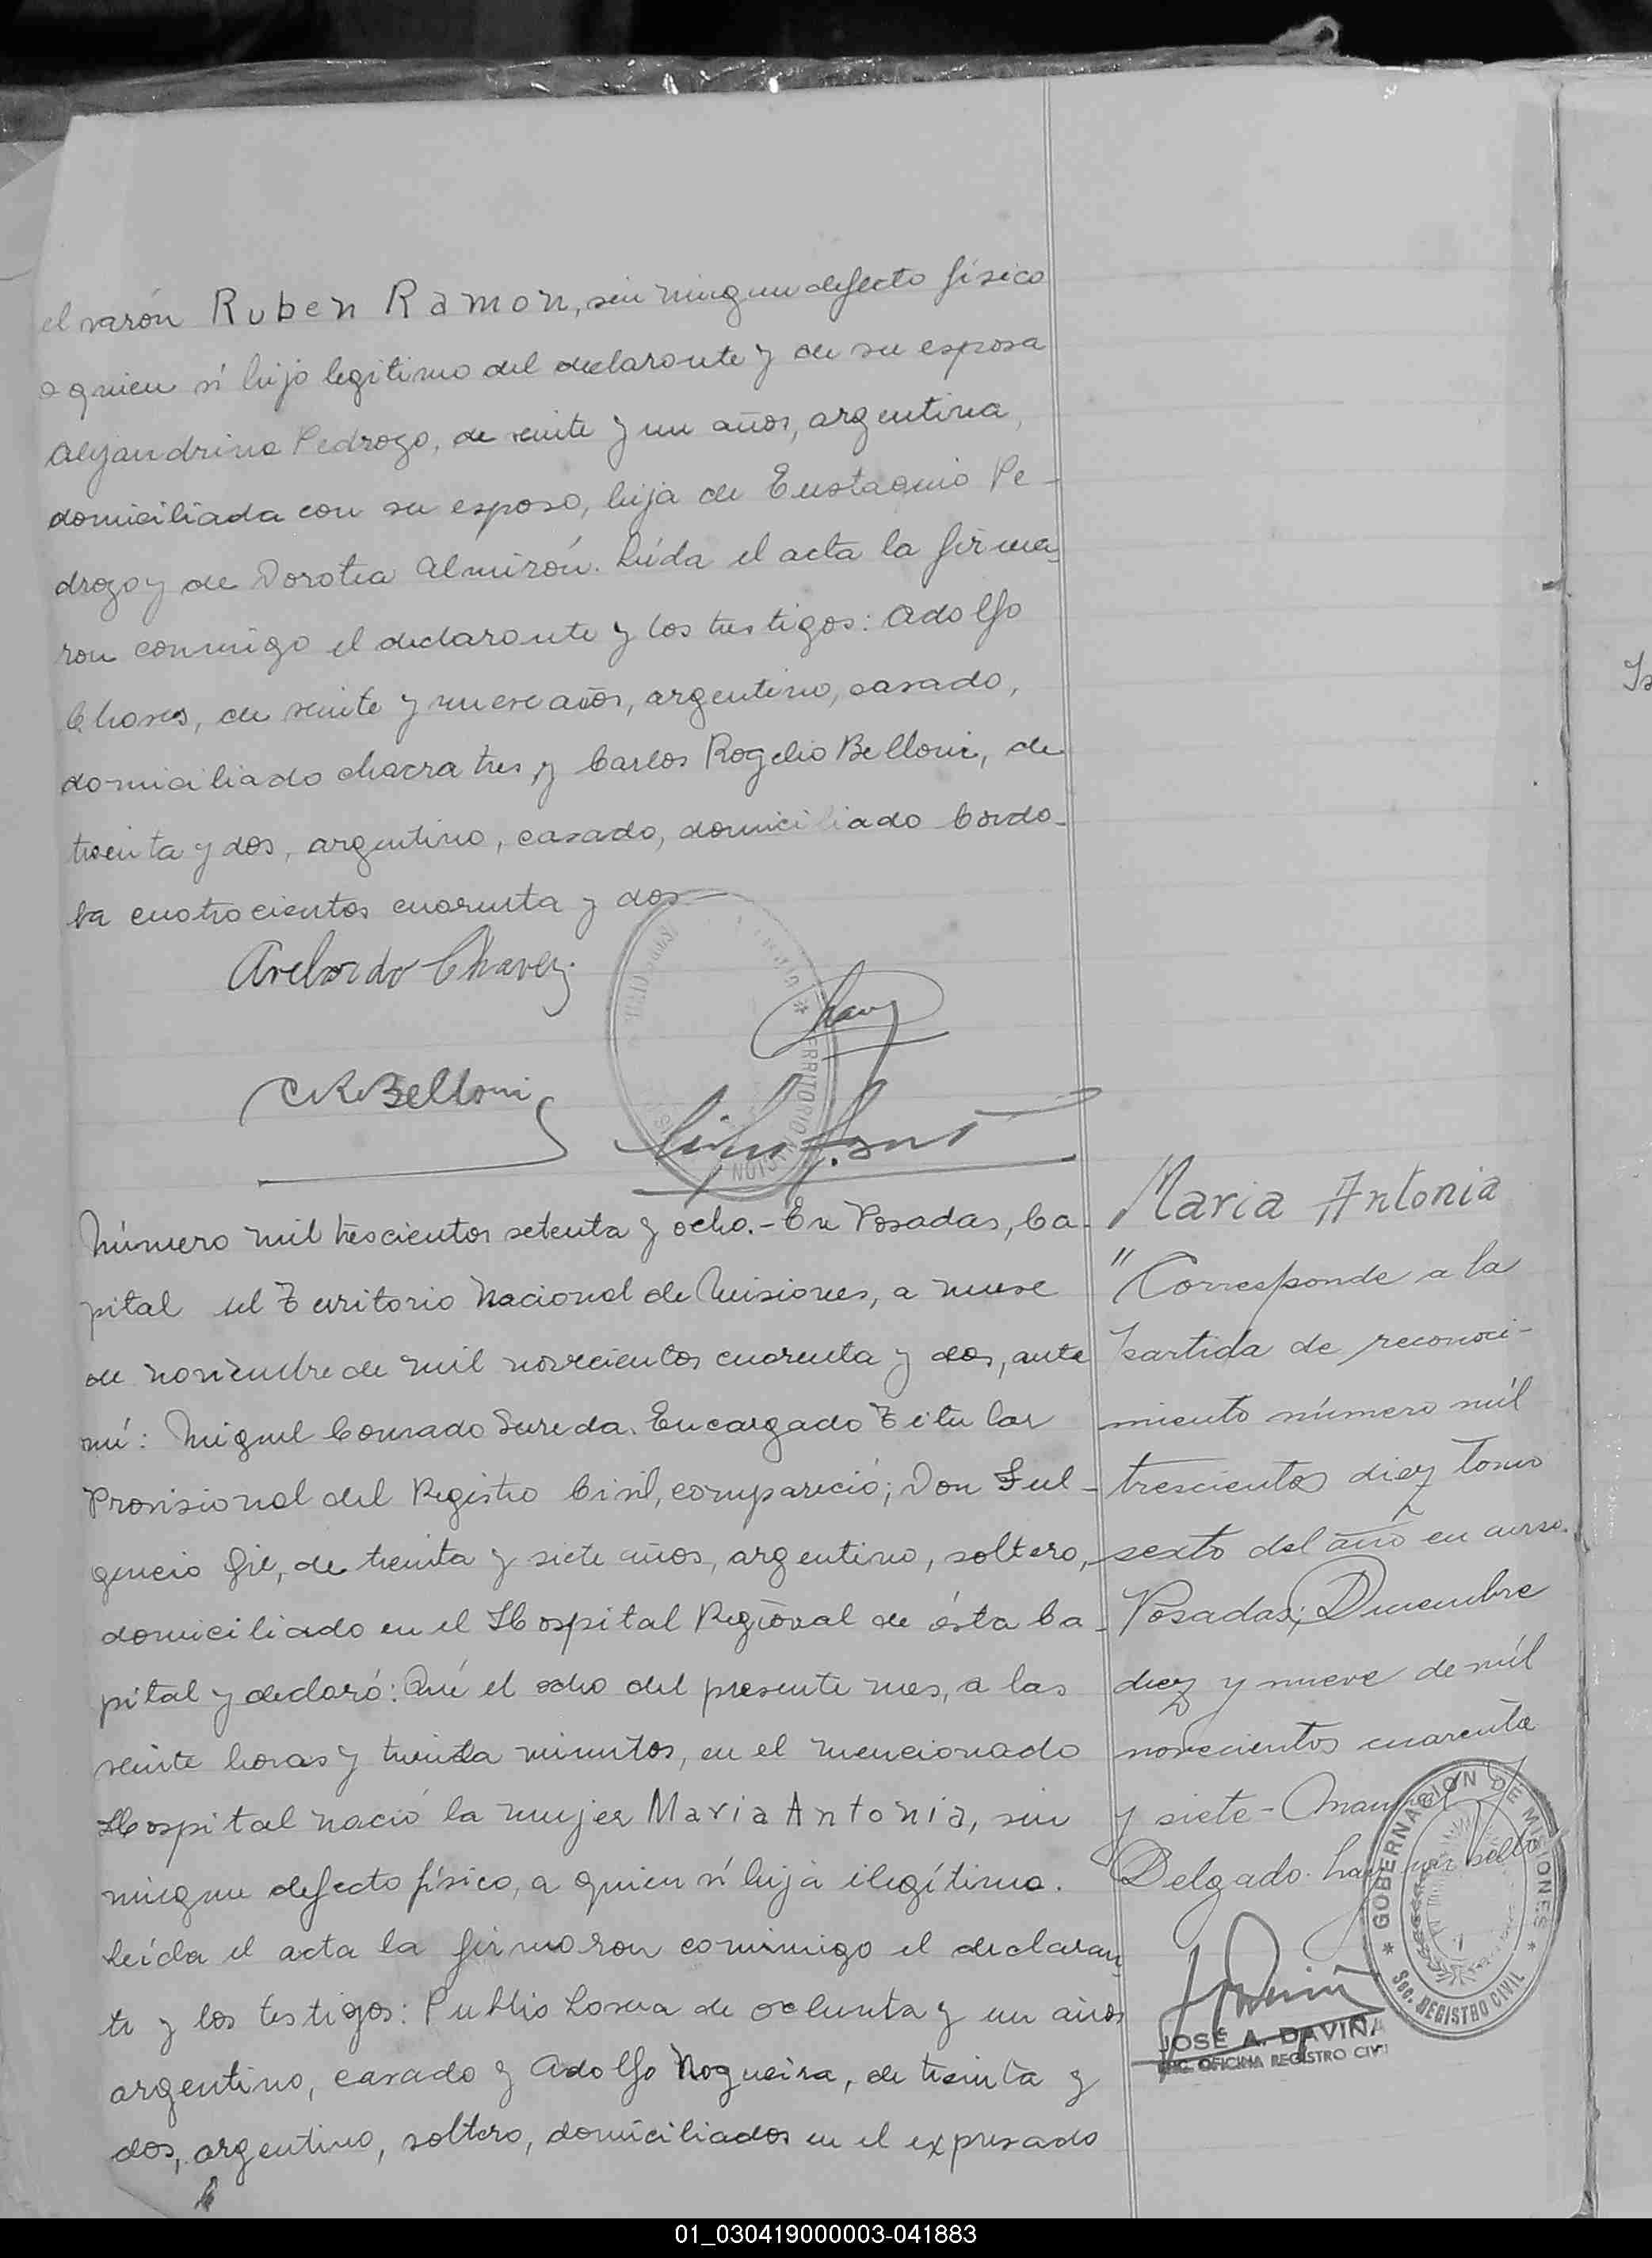 el varón Ruben Ramon, sin ningun defecto físico
a quien vi hijo legítimo del declarante y de su esposa
Alejandrina Pedrozo, de veinte y un años, argentina,
domiciliada con su esposo, hija de Eustaquio Pe-
drozo y de Dorotea Almirón. Leída el acta la firma-
ron conmigo el declarante y los testigos: Adolfo
Chaves, de veinte y nueve años, argentino, casado,
domiciliado chacra tres, y Carlos Rogelio Belloni, de
treinta y dos, argentino, casado, domiciliado Cordo-
ba cuatrocientos cuarenta y dos
Avelardo Chavez
CRBelloni
TERRITORIO
Número mil trescientos setenta y ocho.- En Posadas, Ca-
pital del Territorio Nacional de Misiones, a nueve
de noviembre de mil novecientos cuarenta y dos, ante
mí: Miguel Conrado Sureda. Encargado Titular
Provisional del Registro Civil, compareció; Don Ful-
gencio Gil, de treinta y siete años, argentino, soltero,
domiciliado en el Hospital Regional de ésta Ca-
pital y declaró: Qué el ocho del presente mes, a las
veinte horas y treinta minutos, en el mencionado
Hospital nació la mujer Maria Antonia, sin
ningun defecto físico, a quien vi hija ilegítima.
Leída el acta la firmaron comimigo el declaran-
te y los testigos: Publio de ochenta y un años
argentino, casado y Adolfo Nogueira, de treinta y
dos, argentino, soltero, domiciliados en el expresado
Maria Antonia
"Corresponde a la
partida de reconoci-
miento número mil
trescientos diez tomo
sexto del año en curso.
Posadas, Diciembre
diez y nueve de mil
novecientos cuarenta
y siete-
Delgado. hay un sello
* GOBERNACIÓN DE MISIONES *
Sec. REGISTRO CIVIL
JOSÉ A. DAVIÑA
ENC. OFICINA REGISTRO CIVIL
01_030419000003-041883